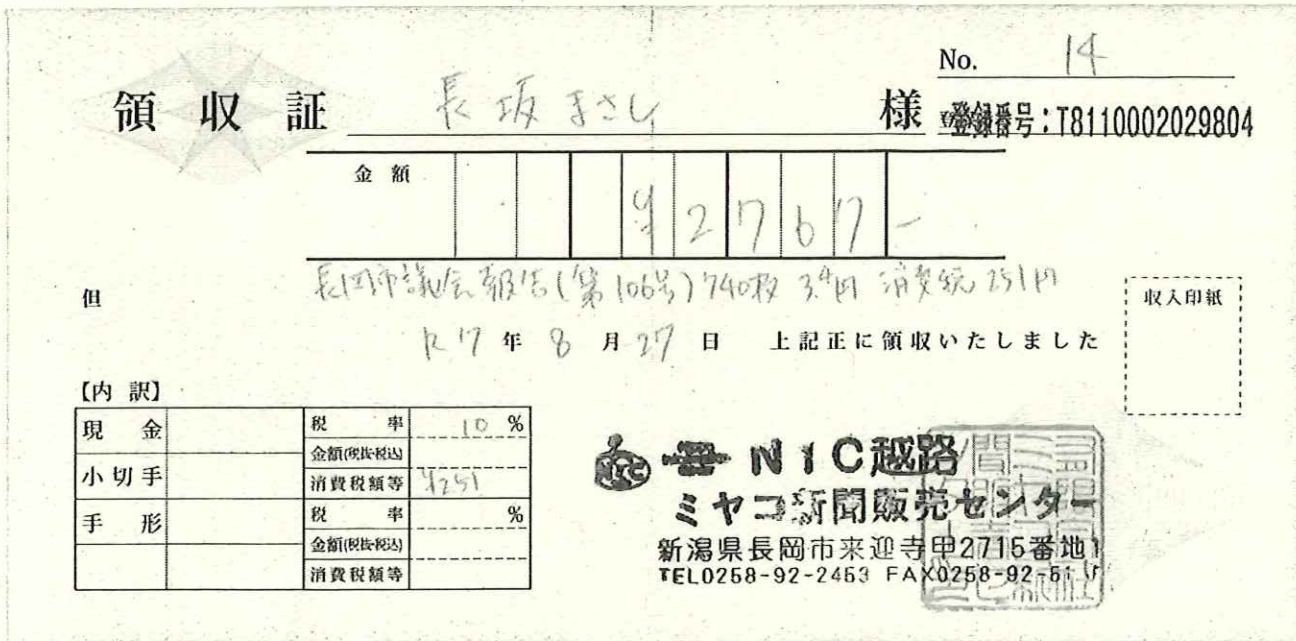 No. 14
領収証 長坂まさし 様
登録番号:T8110002029804
金額 ¥2767-
但 長岡市議会報告(第106号)740枚 3.4円 消費税251円
収入印紙
R7年8月27日 上記正に領収いたしました
【内訳】
現金 税率 10%
金額(税抜・税込)
小切手 消費税額等 ¥251
手形 税率 %
金額(税抜・税込)
消費税額等
NIC越路
ミヤコ新聞販売センター
新潟県長岡市来迎寺甲2715番地1
TEL0258-92-2453 FAX0258-92-51